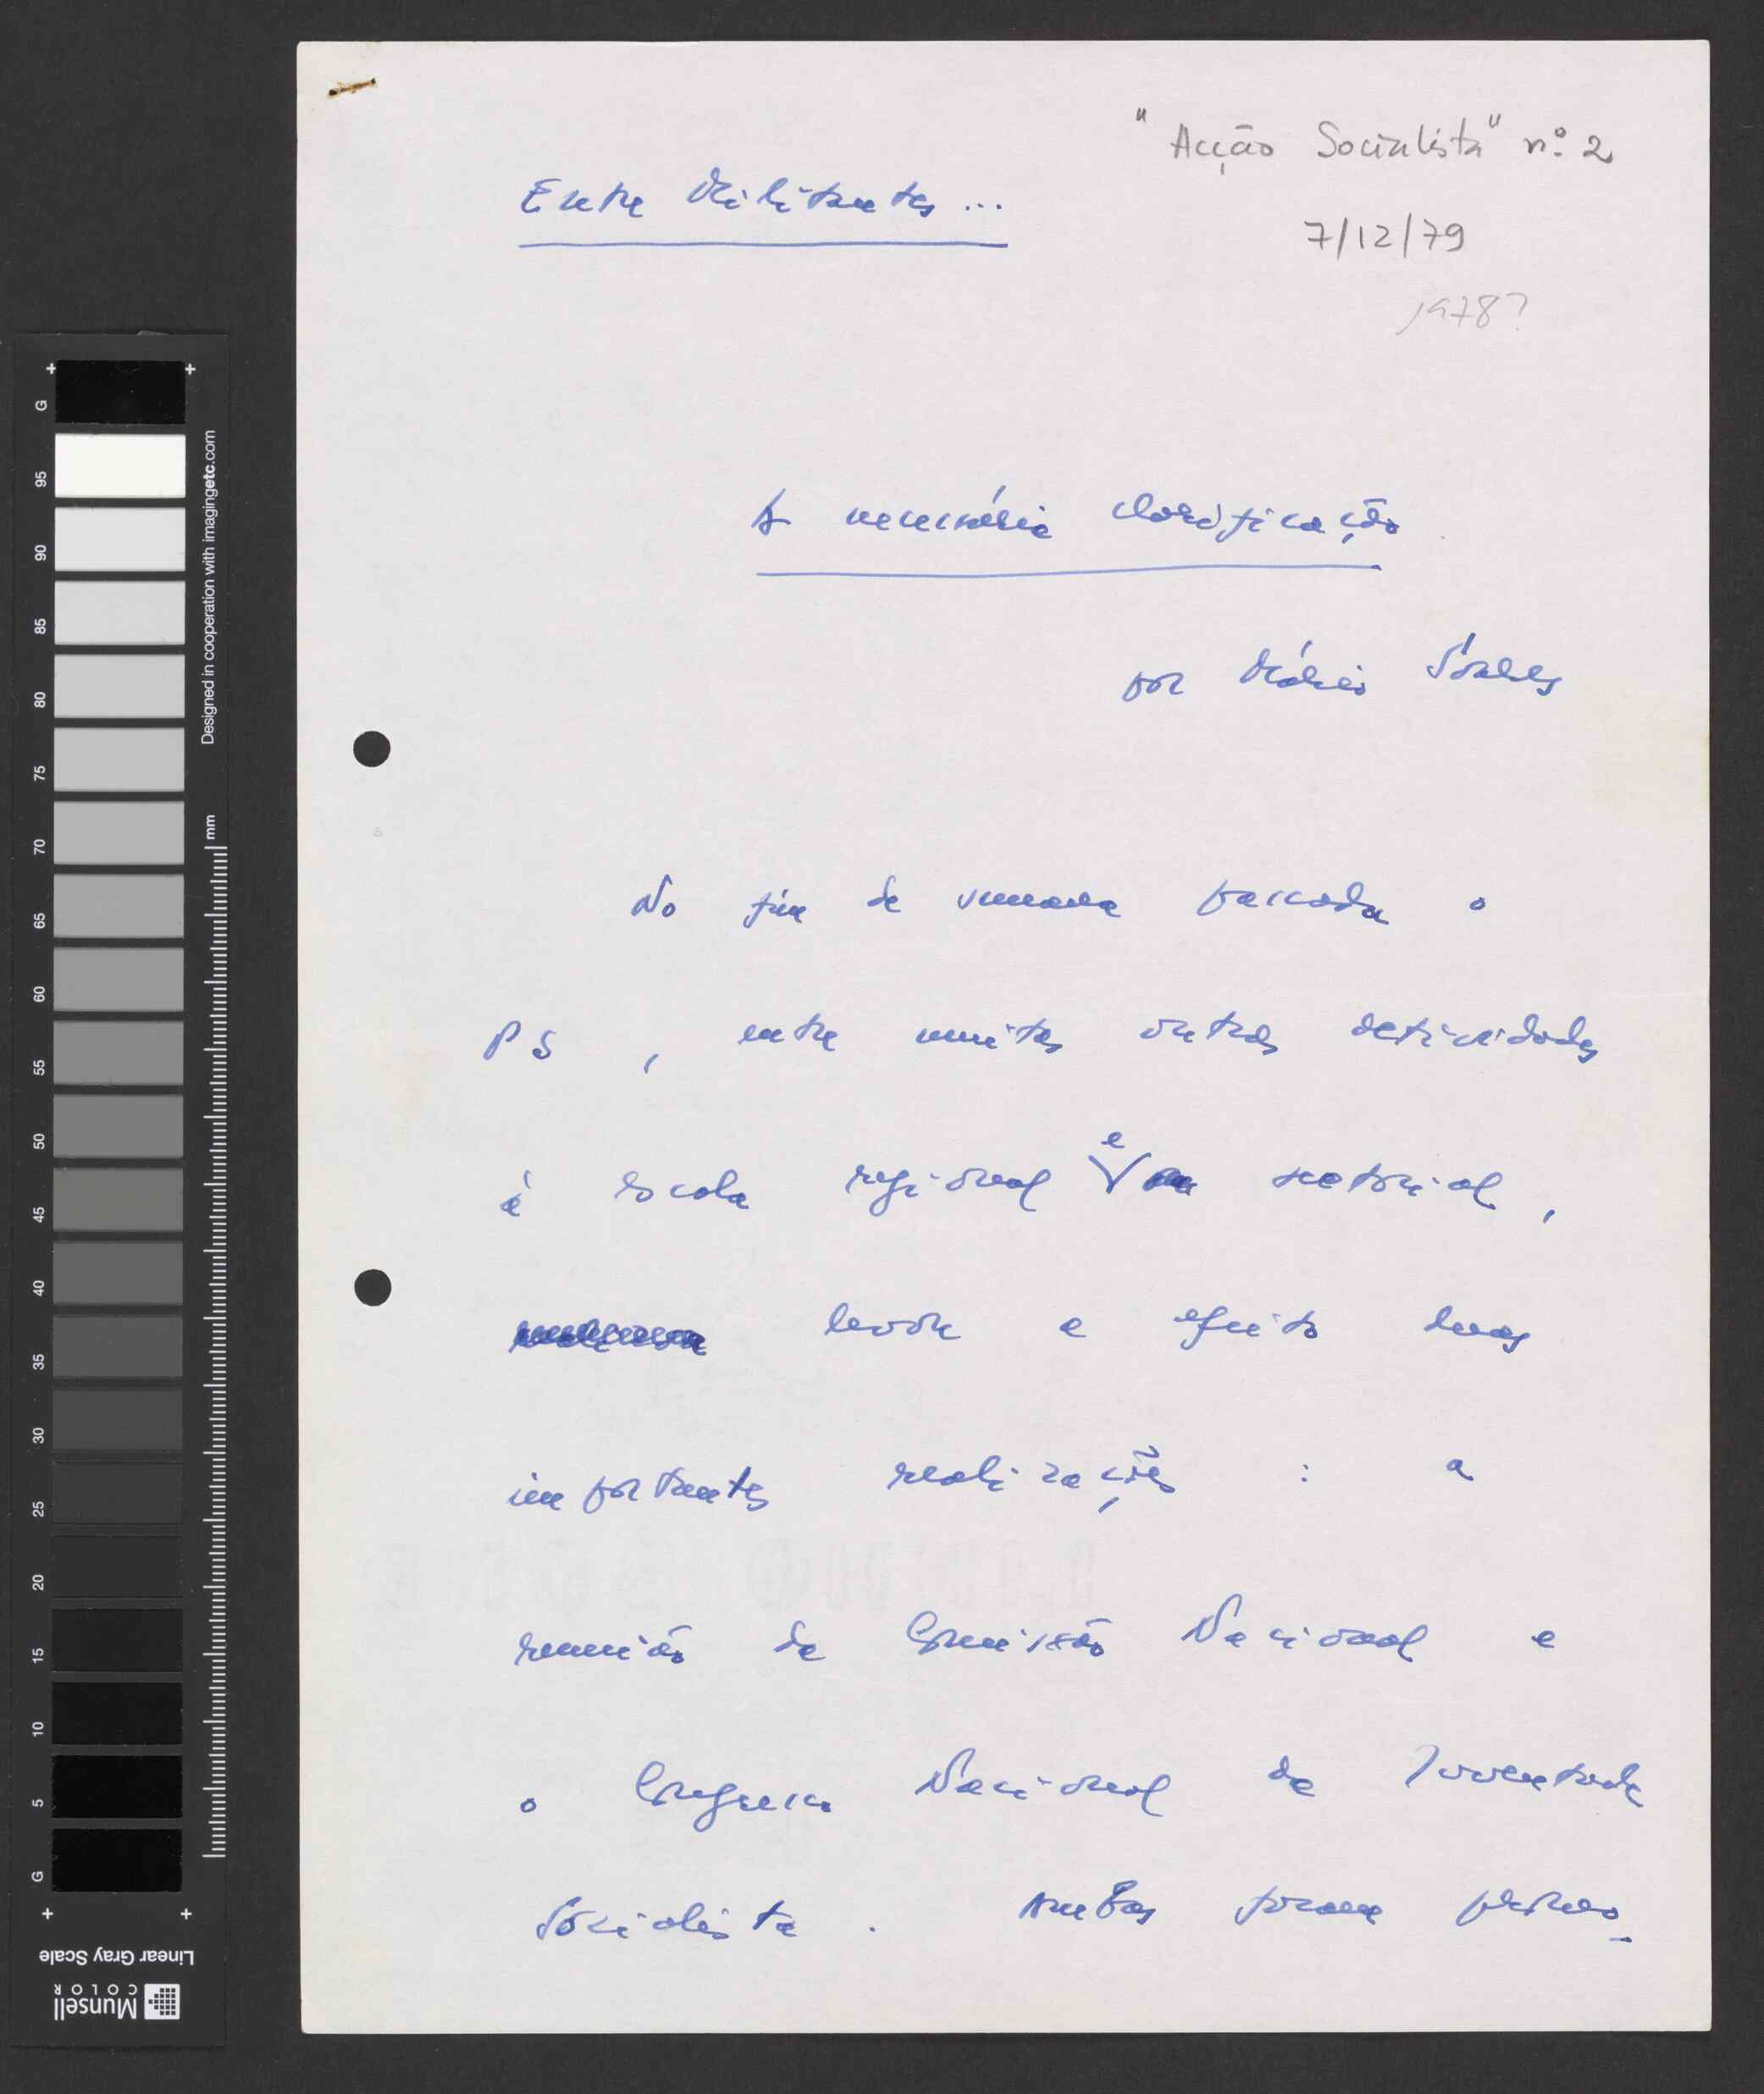 "Acção Socialista" n.º 2
Entre Militantes ...
7/12/79
1978?
A necessária clarificação
por Mário Soares
No fim de semana passada o
PS, entre muitas outras actividades
à escala regional e sectorial,
levou a efeito duas
importantes realizações : a
reunião da Comissão Nacional e
o Congresso Nacional da Juventude
Socialista. Ambas foram
G
95
90
85
80
75
70
65
60
55
50
45
40
35
30
25
20
15
10
5
G
Designed in cooperation with imagingetc.com
mm
Linear Gray Scale
Munsell
COLOR